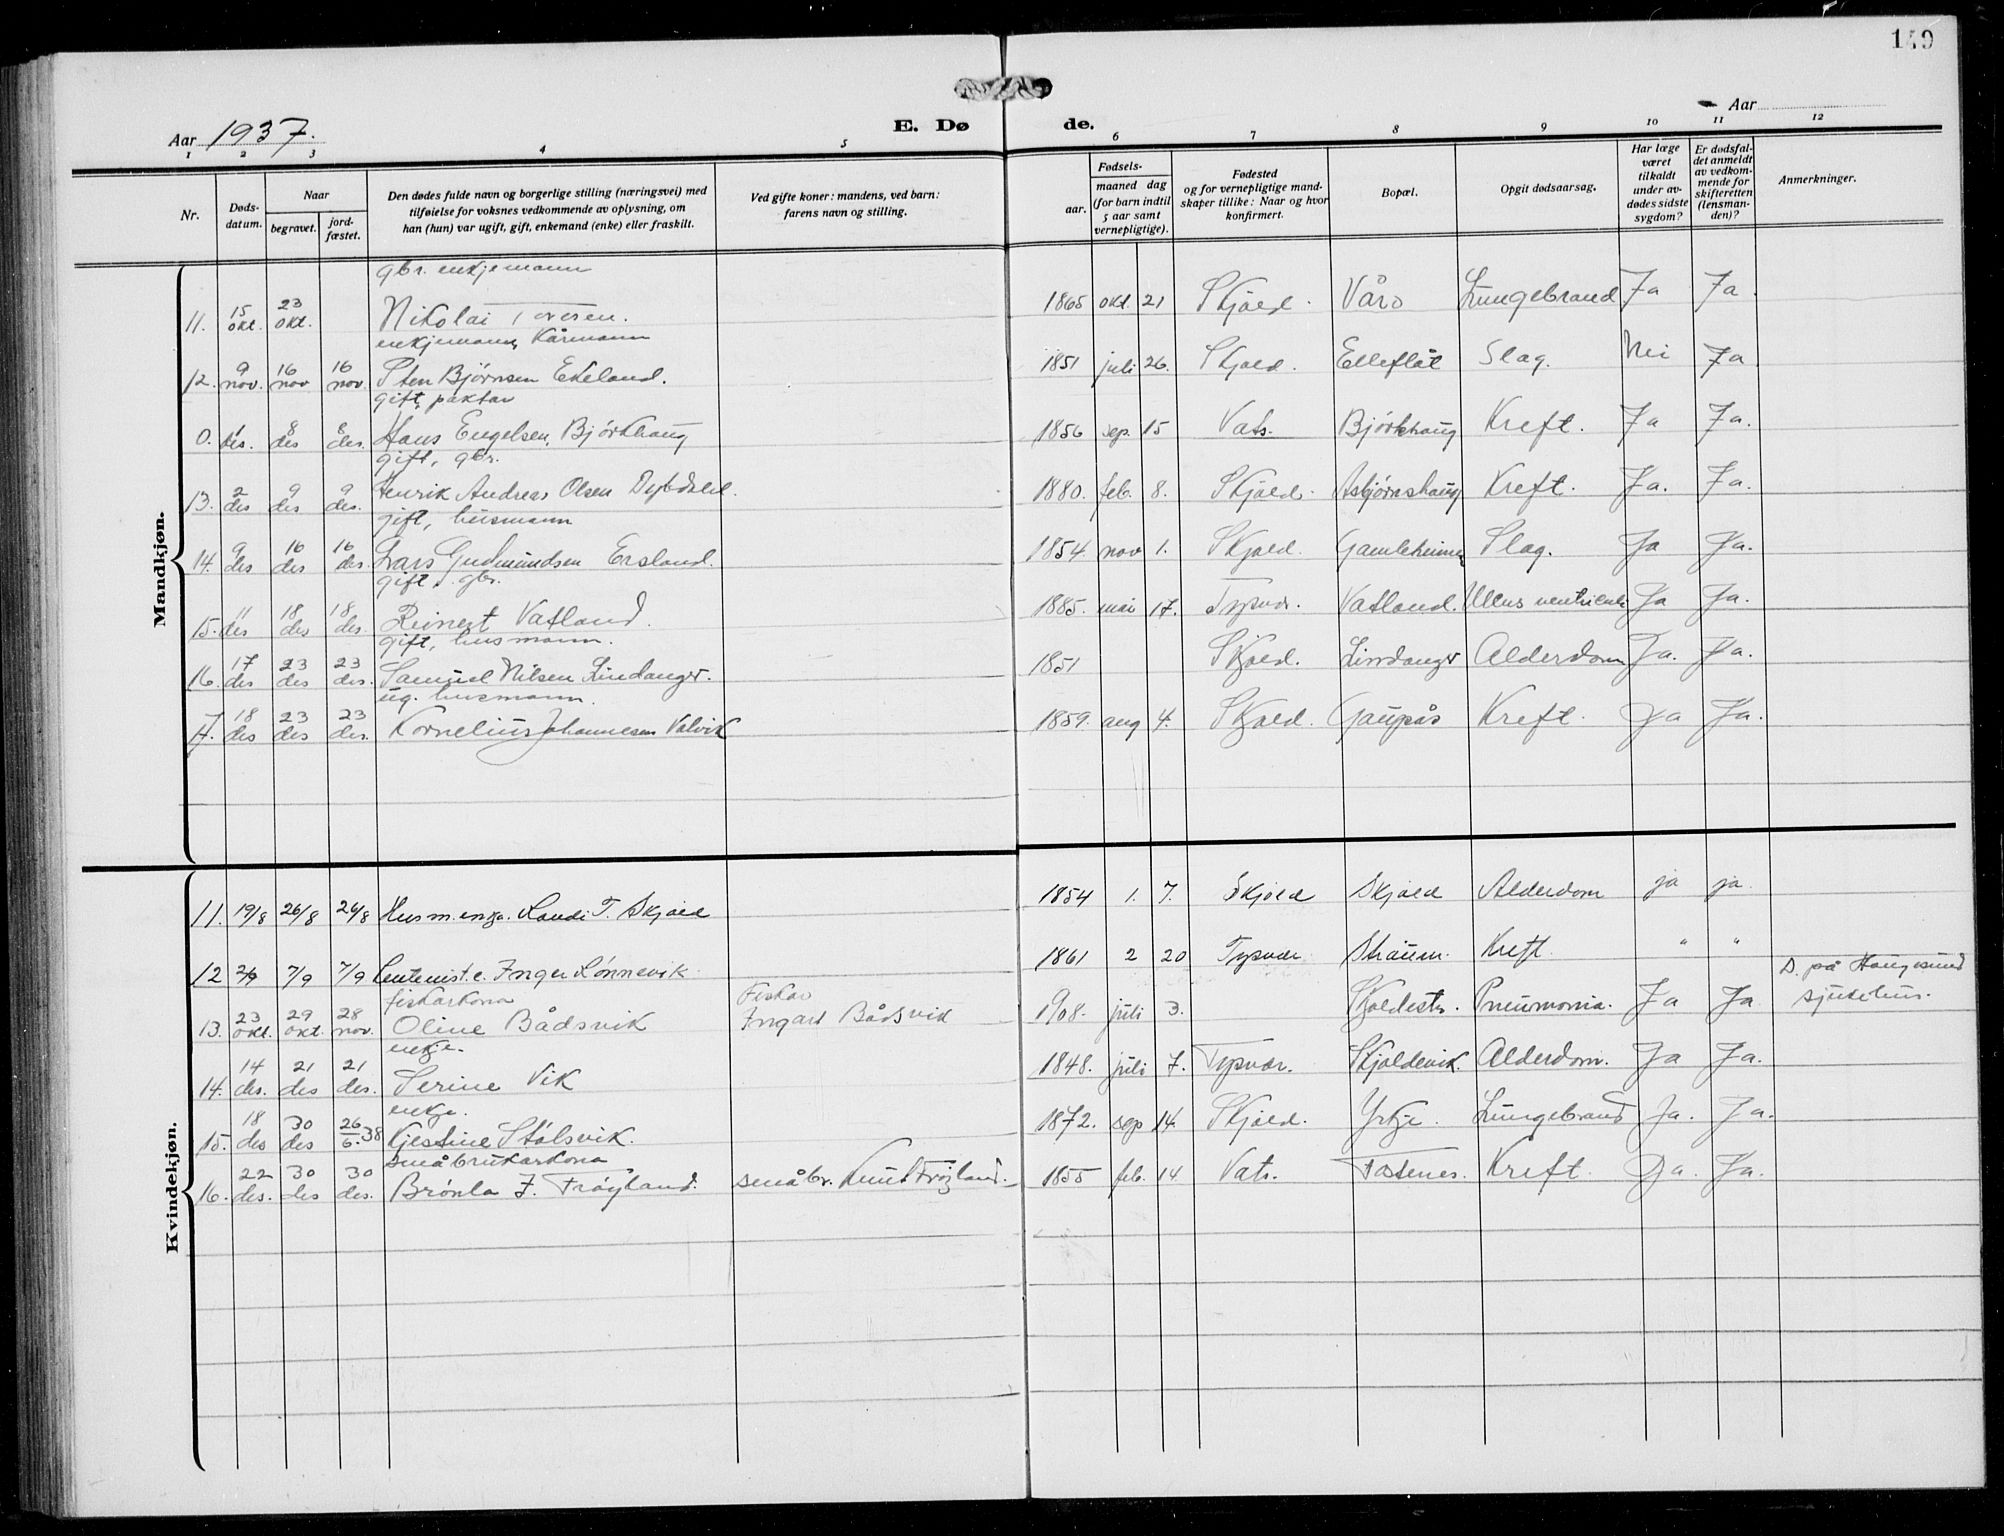 149
Aar 1937.
E. Dø de.
Aar
1 2 3 4 5 6 7 8 9 10 11 12
Nr.
Døds-
datum.
Naar
begravet.
jord-
fæstet.
Den dødes fulde navn og borgerlige stilling (næringsvei) med
tilføielse for voksnes vedkommende av oplysning, om
han (hun) var ugift, gift, enkemand (enke) eller fraskilt.
Ved gifte koner: mandens, ved barn:
farens navn og stilling.
Fødsels-
aar.
maaned dag
(for barn indtil
5 aar samt
vernepligtige).
Fødested
og for vernepligtige mand-
skaper tillike: Naar og hvor
konfirmert.
Bopæl.
Opgit dødsaarsag.
Har læge
været
tilkaldt
under av-
dødes sidste
sygdom?
Er dødsfal-
det anmeldt
av vedkom-
mende for
skifteretten
(lensman-
den)?
Anmerkninger.
Mandkjøn.
gbr. enkjemann
11. 15 okt. 23 okt. Nikolai 1865 okt. 21 Skjold. Våro Lungebrand Ja Ja.
enkjemann, Kårmann
12. 9 nov. 16 nov 16 nov. Sten Bjørnsen Ekeland. 1851 juli 26. Skjold. Elleflåt Slag. Nei Ja
gift, paktar
0. 1 des. 8 des 8 des. Hans Engelsen Bjørkhaug 1856 sep. 15 Vats. Bjørkhaug Kreft. Ja Ja.
gift, gbr.
13. 2 des 9 des 9 des. Henrik Andreas Olsen Dybdahl. 1880. feb. 8. Skjold. Asbjørnshaug Kreft. Ja. Ja.
gift, husmann
14. 9 des 16 des 16 des. Lars Gudmundsen Ersland. 1854. nov 1. Skjold. Gamleheimen Slag. Ja Ja.
gift, gbr.
15. 11 des 18 des 18 des. Reinert Vatland. 1885. mai 17. Tysvær. Vatland. Ulcus ventriculi Ja Ja.
gift, husmann.
16. 17 des 23 des 23 des. Samuel Nilsen Lindanger. 1851 Skjold. Lindanger Alderdom Ja. Ja.
ug. husmann.
17. 18 des 23 des 23 des. Kornelius Johannesen Valvik 1859. aug 4. Skjold. Gaupås Kreft. Ja Ja.
Kvindekjøn.
11. 19/8 26/8 26/8 Husm.enke. T. Skjold 1854 1. 7. Skjold Skjold Alderdom ja ja
12 2/9 7/9 7/9 Inger Lønnevik. 1861 2 20 Tysvær Straum. Kreft. " "
fiskarkona Fiskar D. på Haugesund
13. 23 okt. 29 okt. 28 nov. Oline Bådsvik Ingart Bådsvik 1908. juli 3. Skjoldestr. Pneumonia. Ja Ja. sjukehus.
enkje.
14. 14 des. 21 des 21 des. Serine Vik 1848. juli 7. Tysvær. Skjoldevik. Alderdom. Ja Ja.
enkje.
15. 18 des 30 des 26/6.38 Kjestine Stølsvik. 1872. sep 14. Skjold. Yrkje. Lungebrand Ja. Ja.
småbrukarkona
16. 22 des. 30 des 30 des. Brønla J. Frøyland. småbr. Knut Frøyland. 1855 feb. 14 Vats. Kreft. Ja. Ja.